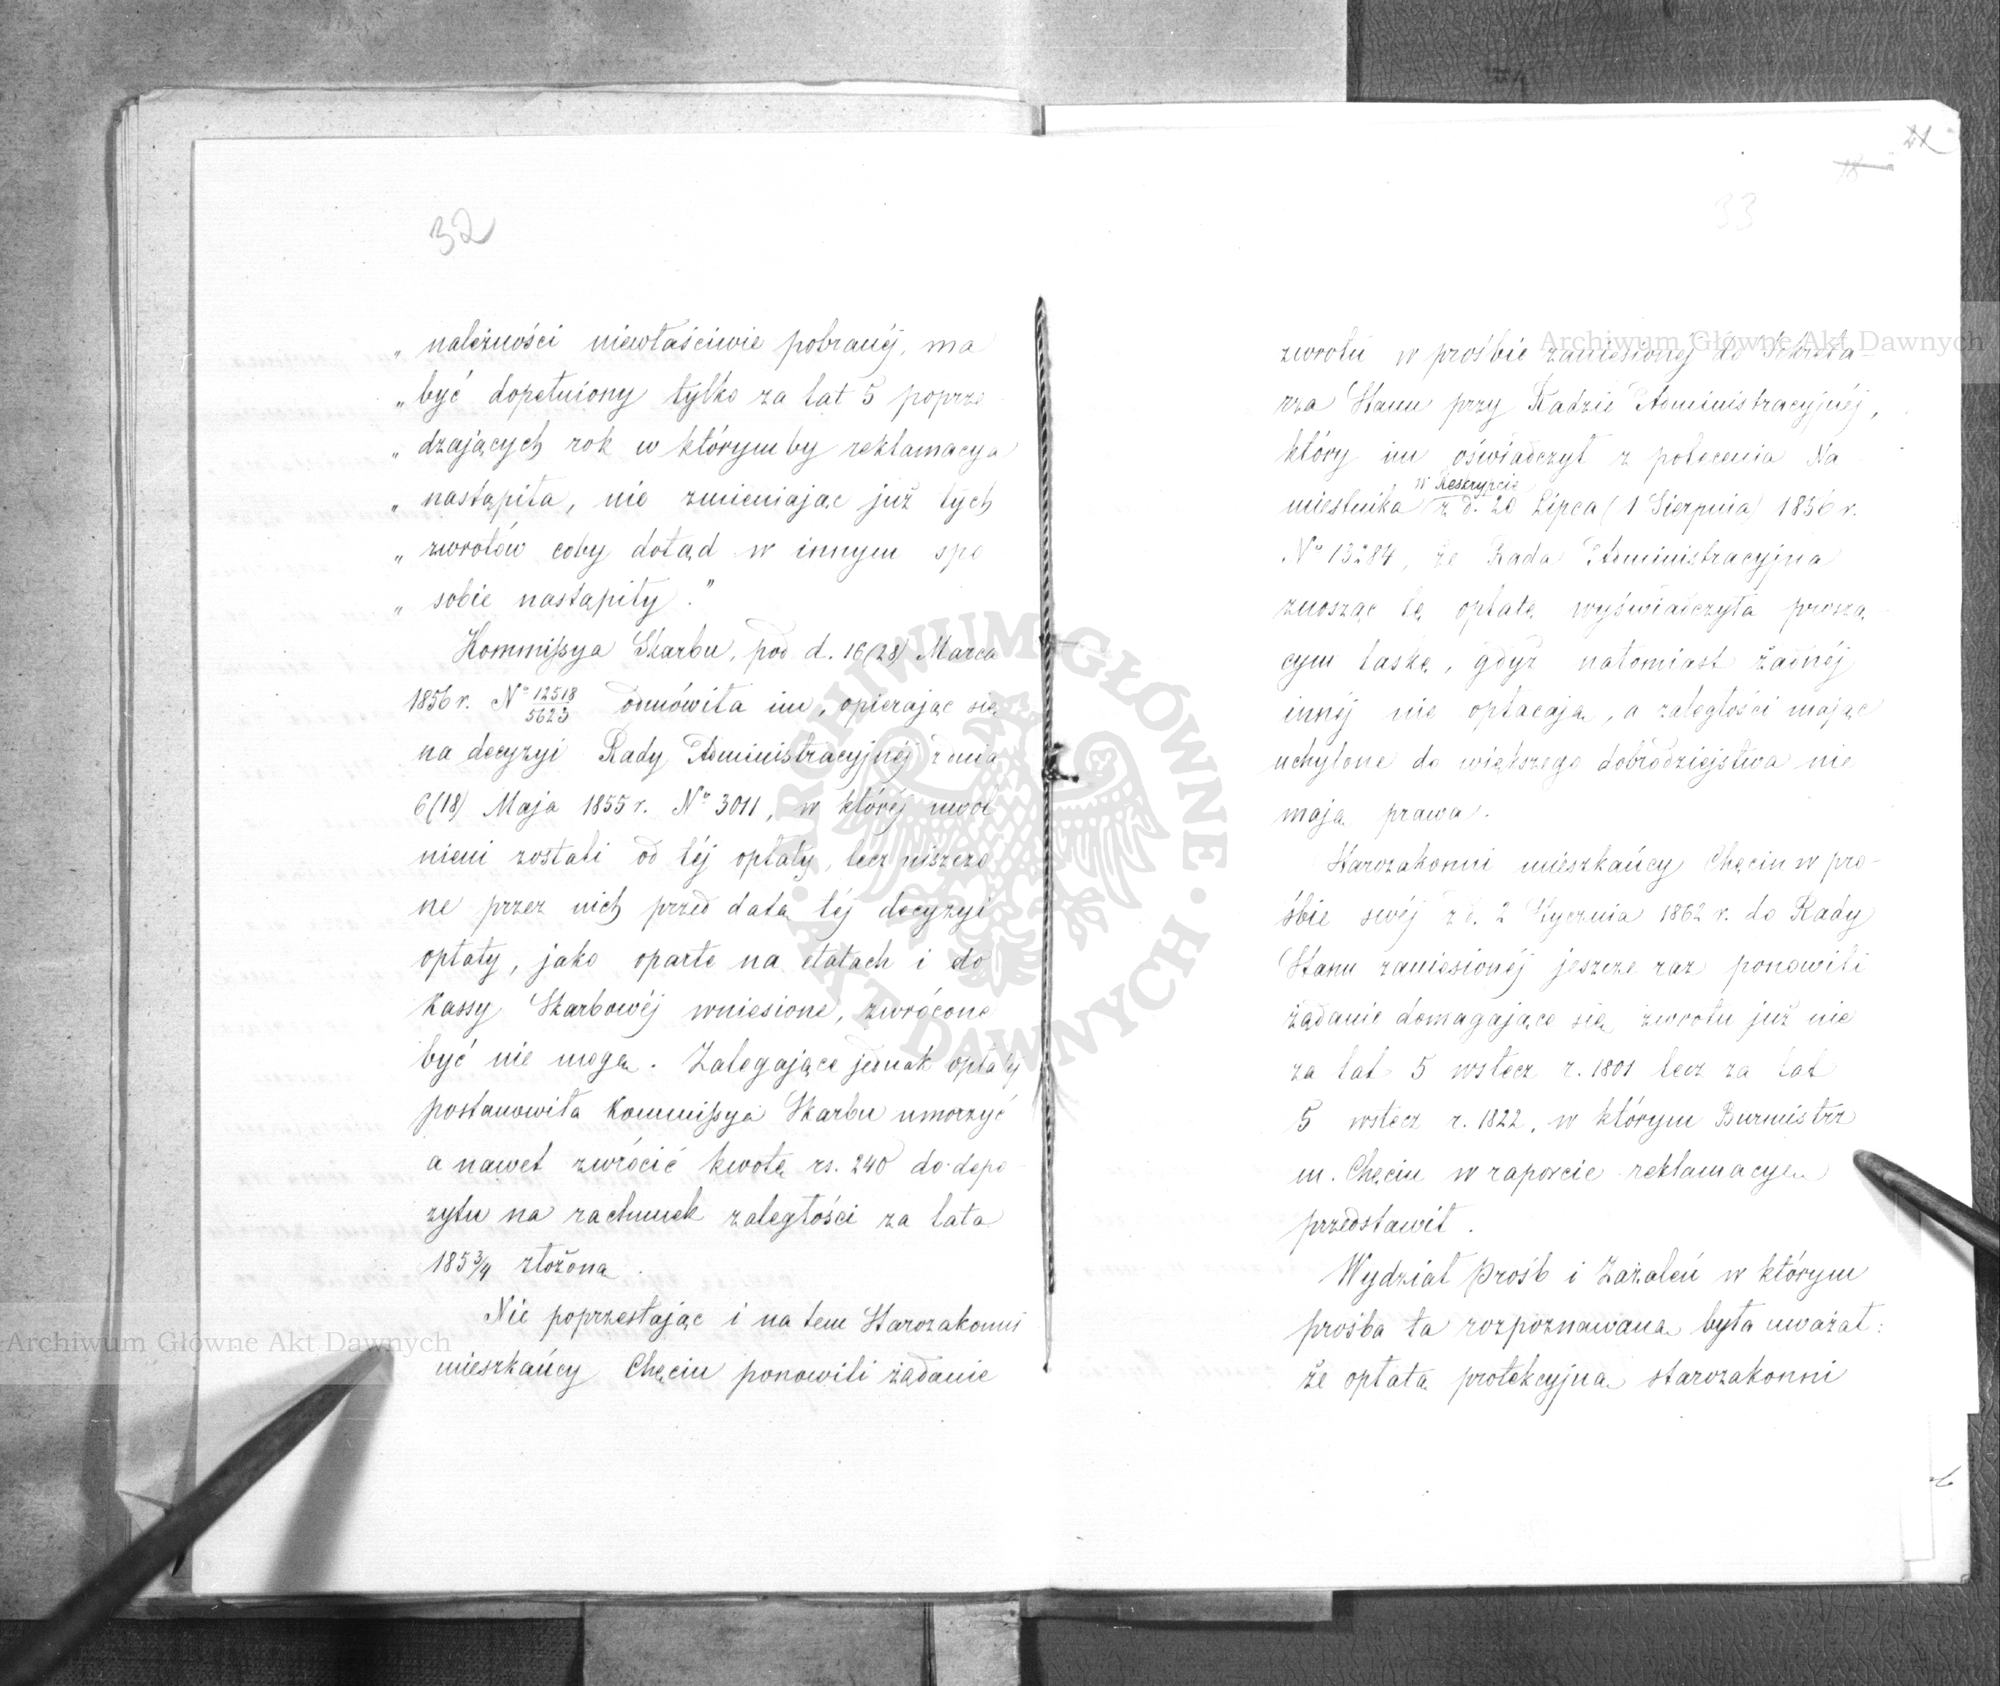 32
„ należności niewłaściwie pobranéj, ma
„ być dopełniony tylko za lat 5 poprze
„ dzających rok w którymby reklamacya
„ nastąpiła, nie zmieniając już tych
„ zwrotów coby dotąd w innym spo
„ sobie nastąpiły."
Kommissya Skarbu, pod d. 16 (28) Marca
1856 r. Nº 12518/5623 odmówiła im, opierając się
na decyzyi Rady Administracyjnéj z dnia
6 (18) Maja 1855 r. Nº 3011, w któréj uwol
nieni zostali od téj opłaty, lecz niszczo
ne przez nich przed datą téj decyzyi
opłaty, jako oparte na etatach i do
Kassy Skarbowéj wniesione, zwrócone
być nie mogą. Zalegające jednak opłaty
postanowiła Kommissya Skarbu umorzyć
a nawet zwrócić kwotę rs. 240 do depo
zytu na rachunek zaległości za lata
185 3/4 złożoną.
Nie poprzestając i na tem Starozakonni
mieszkańcy Chęcin ponowili żądanie
21
18
33
zwrotu w prośbie zaniesionéj do Sekreta-
rza Stanu przy Radzie Administracyjnéj,
który im oświadczył z polecenia Na
w Reskrypcie
miestnika z d. 20 Lipca (1 Sierpnia) 1856 r.
Nº 13284, że Rada Administracyjna
znosząc tę opłatę wyświadczyła proszą-
cym łaskę, gdyż natomiast żadnéj
innéj nie opłacają, a zaległości mając
uchylone do większego dobrodziejstwa nie
mają prawa.
Starozakonni mieszkańcy Chęcin w pro-
śbie swéj z d. 2 Stycznia 1862 r. do Rady
Stanu zaniesionéj jeszcze raz ponowili
żądanie domagające się zwrotu już nie
za lat 5 wstecz r. 1801 lecz za lat
5 wstecz r. 1822, w którym Burmistrz
m. Chęcin w raporcie reklamacyę
przedstawił.
Wydział Próśb i Zażaleń w którym
prośba ta rozpoznawana była uważał:
że opłatę protekcyjną starozakonni
Archiwum Główne Akt Dawnych
Archiwum Główne Akt Dawnych
ARCHIWUM GŁÓWNE AKT DAWNYCH